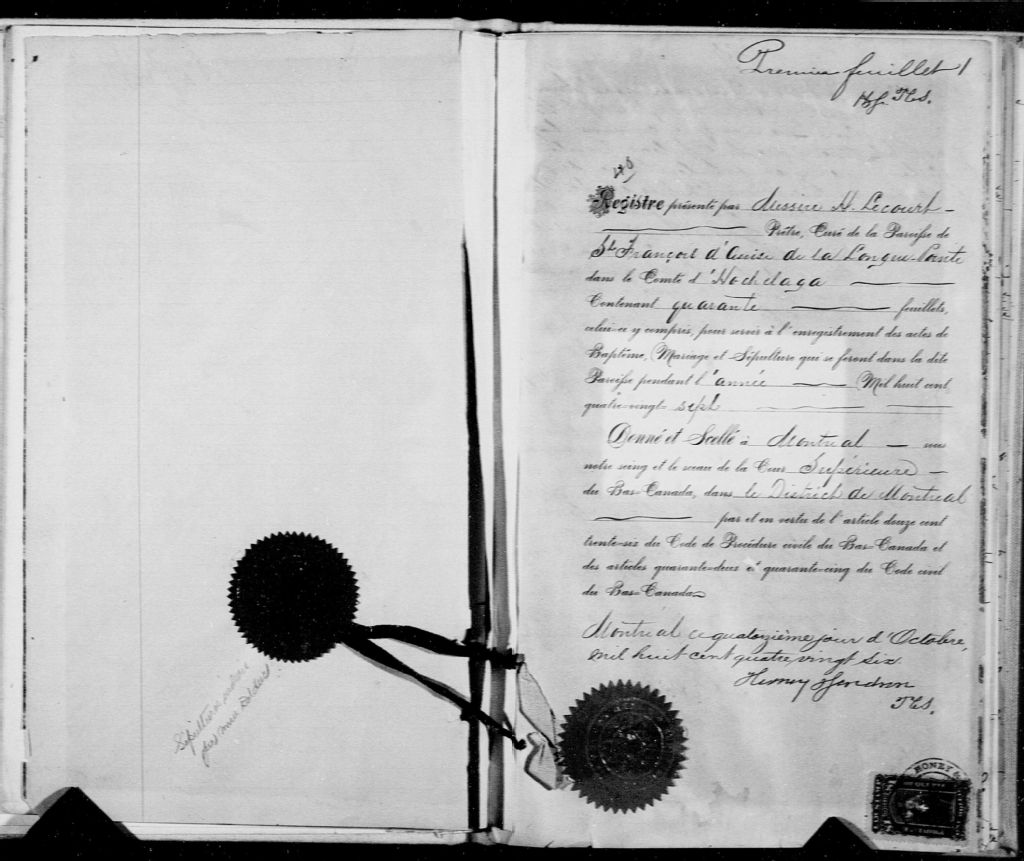 Premier feuillet 1
Registre présenté par Messire H. Lecourt
Prêtre, Curé de la Paroisse de
St. François d'Assise de la Longue-Pointe
dans le Comté d'Hochelaga
Contenant quarante feuillets,
celui-ci y compris, pour servir à l'enregistrement des actes de
Baptême, Mariage et Sépulture qui se feront dans la dite
Paroisse pendant l'année Mil huit cent
quatre-vingt-sept
Donné et Scellé à Montréal sous
notre seing et le sceau de la Cour Supérieure
du Bas-Canada, dans le District de Montréal
par et en vertu de l'article douze cent
trente-six du Code de Procédure civile du Bas-Canada et
des articles quarante-deux et quarante-cinq du Code civil
du Bas-Canada
Montréal ce quatorzième jour d'Octobre,
mil huit cent quatre vingt six.
Sépulture
MONEY